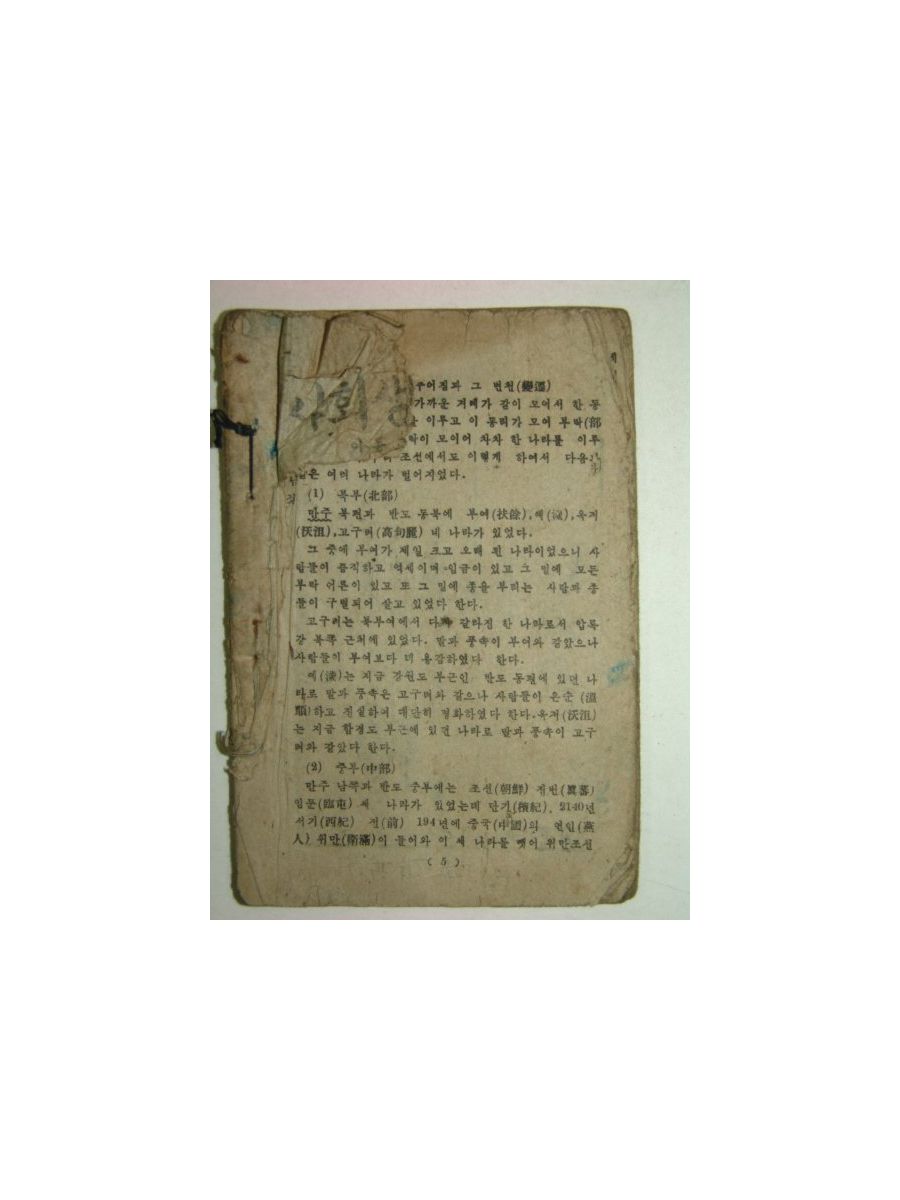 주어짐과 그 변천(變遷)
가까운 겨레가 같이 모여서 한 동
을 이루고 이 동리가 모여 부락(部
락이 모이어 차차 한 나라를 이루
조선에서도 이렇게 하여서 다음
은 여러 나라가 벌어지었다.
사회생
(1) 북부(北部)
만주 북편과 반도 동북에 부여(扶餘),예(濊),옥저
(沃沮),고구려(高句麗) 네 나라가 있었다.
그 중에 부여가 제일 크고 오래 된 나라이었으니 사
람들이 음직하고 억세이며 임금이 있고 그 밑에 모든
부락 어른이 있고 또 그 밑에 종을 부리는 사람과 종
들이 구별되어 살고 있었다 한다.
고구려는 북부여에서 다시 갈라짐 한 나라로서 압록
강 북쪽 근처에 있었다. 말과 풍속이 부여와 같았으나
사람들이 부여보다 더 용감하였다 한다.
예(濊)는 지금 강원도 부근인 반도 동편에 있던 나
라로 말과 풍속은 고구려와 같으나 사람들이 온순(溫
順)하고 진실하여 대단히 평화하였다 한다.옥저(沃沮)
는 지금 함경도 부근에 있던 나라로 말과 풍속이 고구
려와 같았다 한다.
(2) 중부(中部)
만주 남쪽과 반도 중부에는 조선(朝鮮) 진번(眞蕃)
임둔(臨屯) 세 나라가 있었는데 단기(檀紀). 2140년
서기(西紀) 전(前) 194년에 중국(中國)의 연인(燕
人) 위만(衛滿)이 들어와 이 세 나라를 뺏어 위만조선
(5)